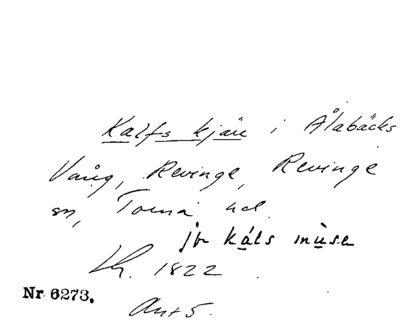 Kalfs kjäu i Ålabäcks
Vång, Revinge, Revinge
sn, Torna hd.
jfr kåls mùse
Lh. 1822
Nr 6273.
Ant 5.